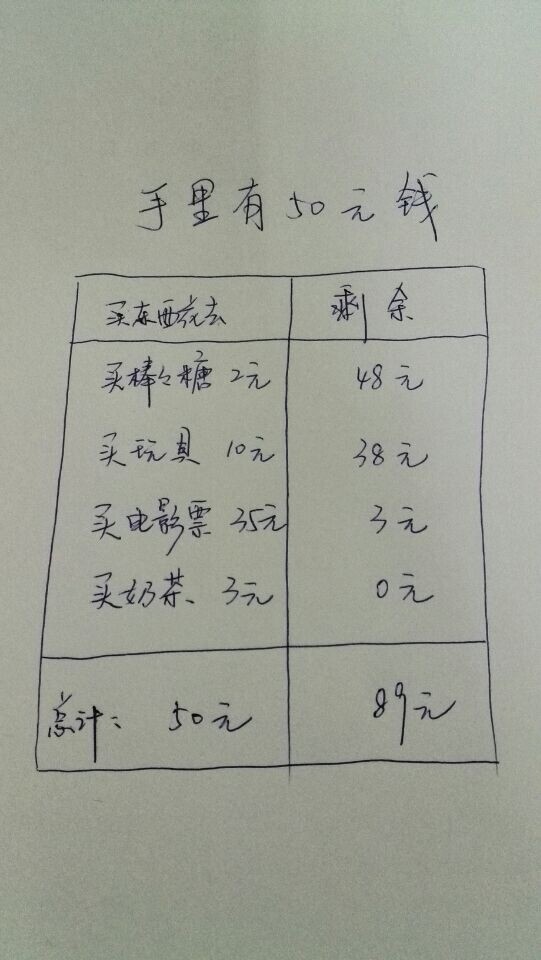 手里有50元钱
买东西花去 剩余
买棒々糖 2元 48元
买玩具 10元 38元
买电影票 35元 3元
买奶茶、 3元 0元
总计: 50元 89元